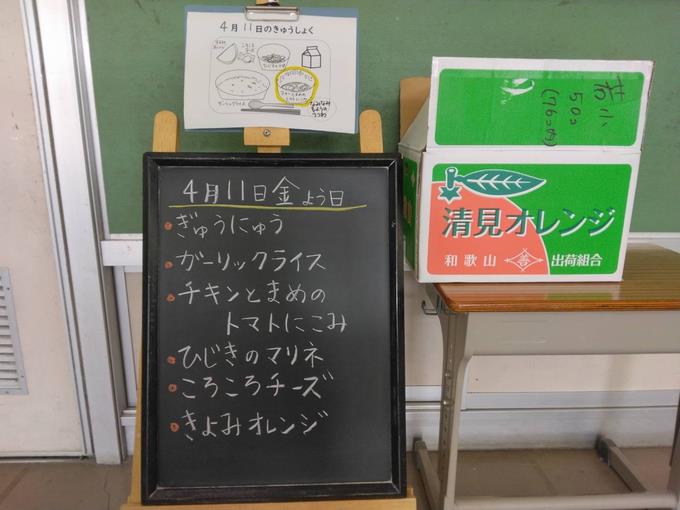 4月11日のきゅうしょく
ガーリックライス
なみなみ
もようの
うつわ
4月11日金よう日
ぎゅうにゅう
ガーリックライス
チキンとまめの
トマトにこみ
ひじきのマリネ
ころころチーズ
きよみオレンジ
50コ
清見オレンジ
和歌山
出荷組合